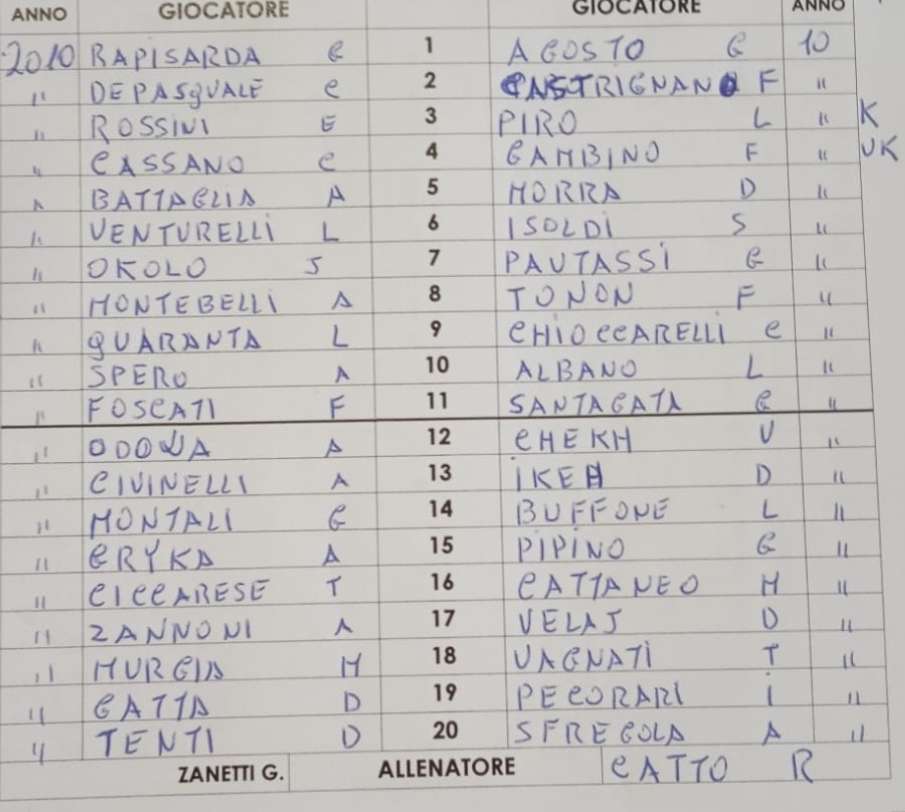 ANNO GIOCATORE GIOCATORE ANNO
2010 RAPISARDA G 1 AGOSTO G 10
" DEPASQUALE C 2 CASTRIGNANO F "
" ROSSINI E 3 PIRO L " K
" CASSANO C 4 GAMBINO F " VK
" BATTAGLIA A 5 MORRA D "
" VENTURELLI L 6 ISOLDI S "
" OKOLO J 7 PAUTASSI G "
" MONTEBELLI A 8 TONON F "
" QUARANTA L 9 CHIOCCARELLI C "
" SPERO A 10 ALBANO L "
" FOSCATI F 11 SANTAGATA G "
" A 12 CHEKH V "
" CIVINELLI A 13 IKEH D "
" MONTALI G 14 BUFFONE L "
" GRYKA A 15 PIPINO G "
" CICCARESE T 16 CATTANEO M "
" ZANNONI A 17 VELAJ D "
" MURGIA M 18 VAGNATI T "
" GATTA D 19 PECORARI I "
" TENTI D 20 SFREGOLA A "
ZANETTI G. ALLENATORE CATTO R